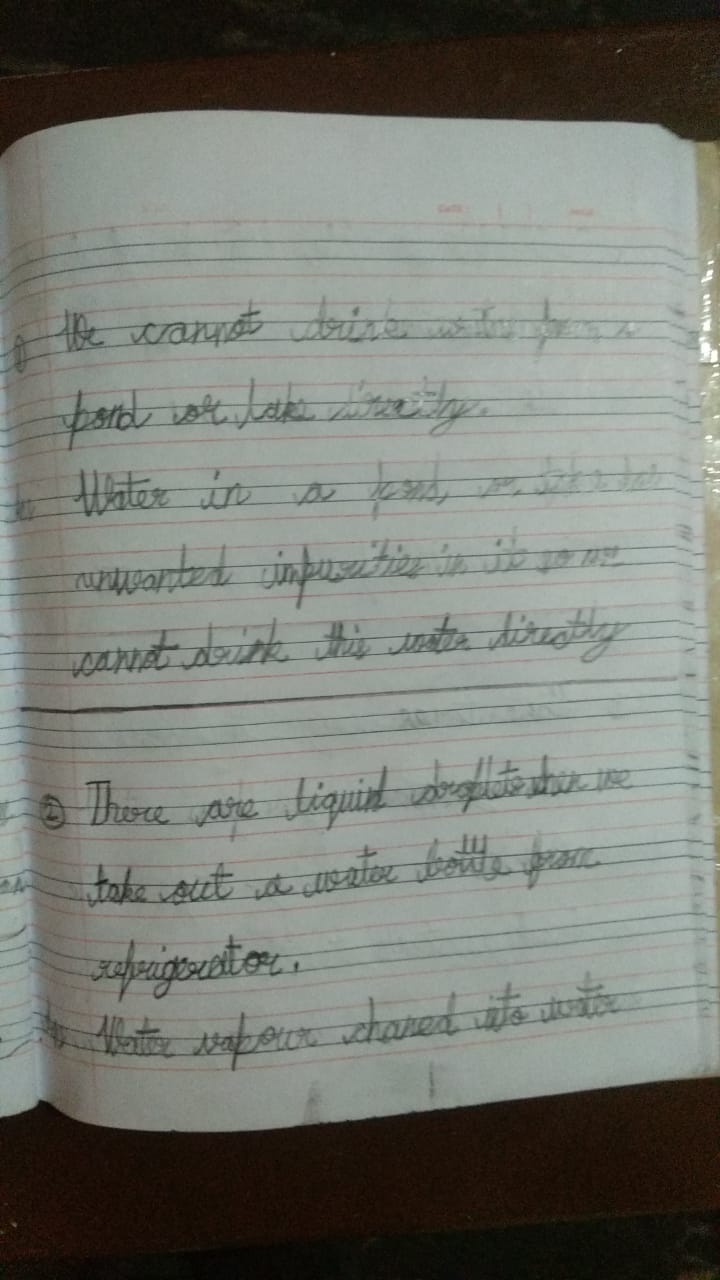 1) We cannot drink water from a
pond or lake directly.
Ans Water in a pond or lake has
unwanted impurities in it so we
cannot drink this water directly
② There are liquid droplets when we
take out a water bottle from
refrigerator.
Ans Water vapour chaned into water